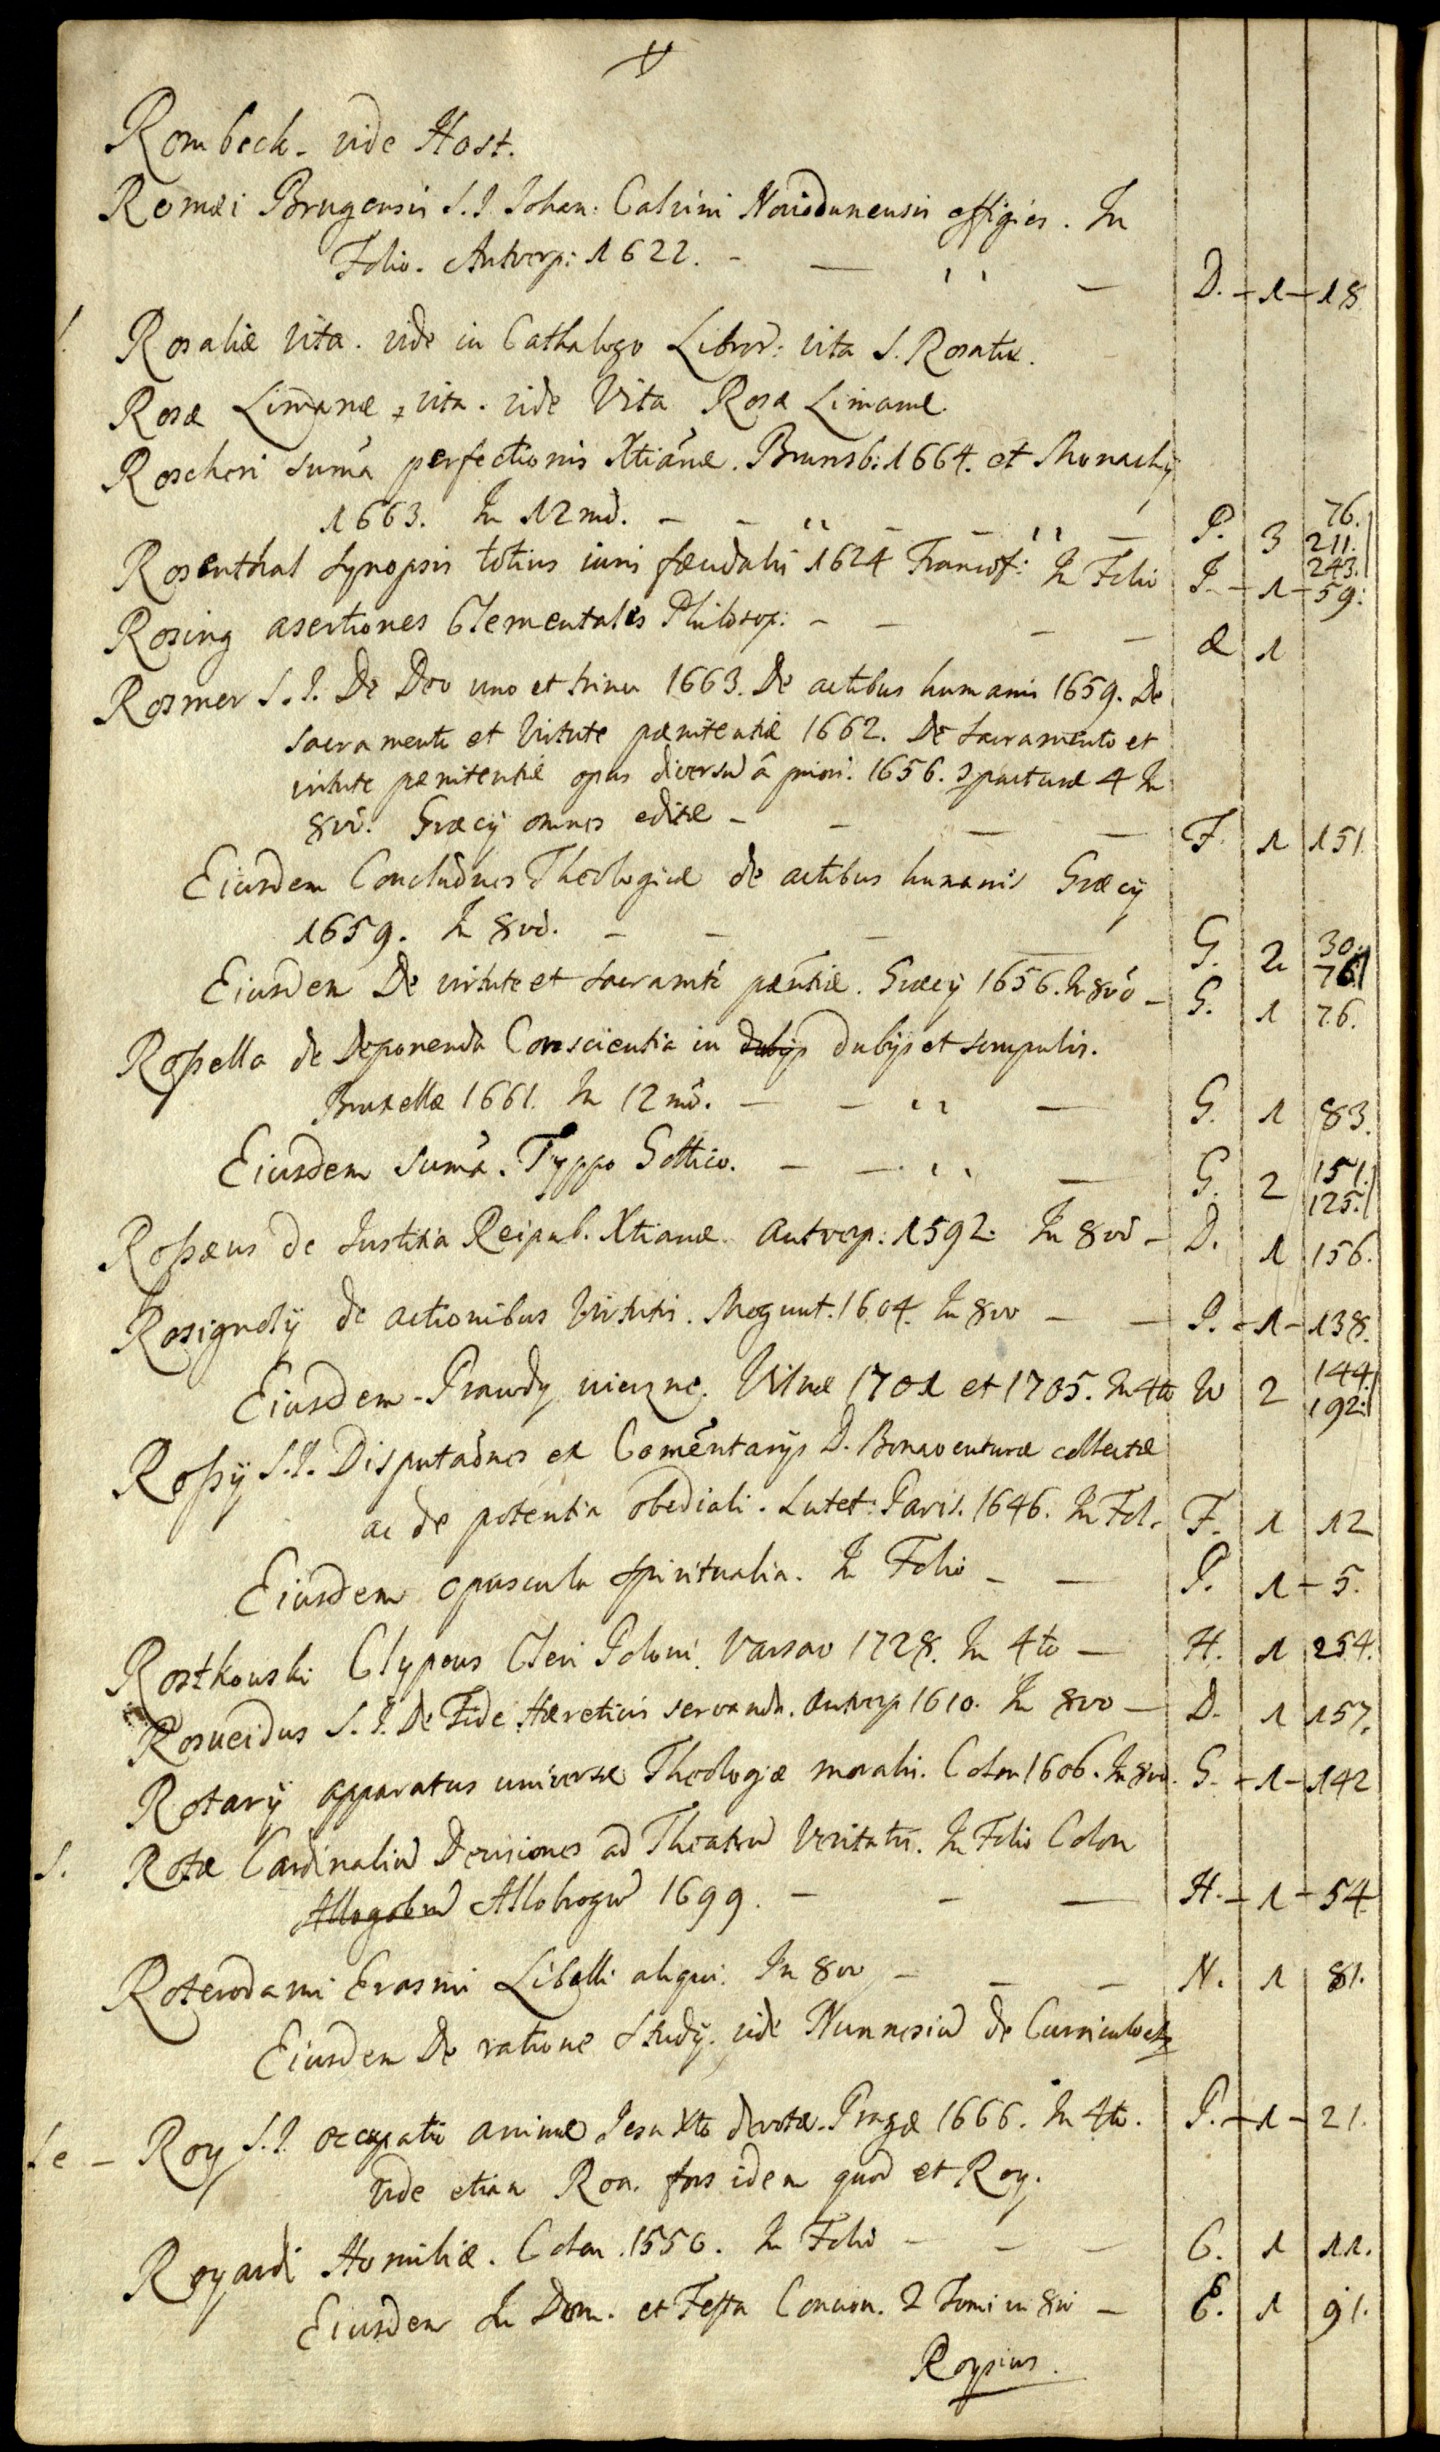 Rombeck - vide Host.
Romæi Brugensis S.J. Johan: Calvini Noviodunensis effigies. In
Folio. Antverp: 1622. - — ,, — D. - 1 - 18
Rosaliæ vita. vide in Cathalogo Libror: vita S. Rosaliæ.
Rosæ Limanæ vita. vide Vita Rosæ Limanæ.
Roscheri suma perfectionis Xtianæ. Brunsb: 1664. et Monachij
1663. In 12mo. - - ,, - - ,, — P. 3 76. 211. 243.
Rosenthal Synopsis totius iuris fæudalis 1624 Francof: In Folio J. - 1 - 59:
Rosing asertiones Elementales Philosop: - - - - Æ 1
Rosmer S.J. De Deo uno et trino 1663. De actibus humanis 1659. De
sacramento et virtute pænitentiæ 1662. De Sacramento et
virtute pænitentiæ opus diversũ â priori. 1656. 4 In
8vo. Græcij omnes editæ - - — — F. 1 151
Eiusdem Concluônes Theologicæ de actibus humanis Græcij
1659. In 8vo. - - — G. 2 30. 76
Eiusdem De virtute et Sacramẽ pæntiæ. Græcij 1656. In 8vo - G. 1 76.
Roſsella de Deponenda Conscientia in dubijs dubijs et scrupulis.
Bruxellæ 1661. In 12mo. — - ,, — G. 1 83.
Eiusdem Suma. Typpo Gothico. — —. ,, — G. 2 151. 125.
Roſsæus de Justitia Reipub. Xtianæ. Antverp: 1592. In 8vo - D. 1 156.
Rosignolij de actionibus Virtutis. Mogunt. 1604. In 8vo — — P. - 1 - 138.
Eiusdem - Prawdy wieczne. Vilnæ 1701 et 1705. In 4to W 2 144. 192.
Roſsij S.J. Disputaônes ex Comentarijs D. Bonaventuræ collectæ
ac de potentia obediali. Lutet: Paris. 1646. In Fol. F. 1 12
Eiusdem opuscula spiritualia. In Folio - — P. 1 - 5.
Rostkowski Clypeus Cleri Poloni. Varsav 1728. In 4to — H. 1 254.
Rosueidus S.J. De Fide Hæreticis servanda. Antverp 1610. In 8vo — D. 1 157.
Rotarij apparatus universæ Theologiæ moralis. Colon 1606. In 8vo. G. - 1 - 142
S. Rotæ Cardinaliũ Decisiones ad Theatrũ Veritatis. In Folio Colon
Allogobrũ Allobrogũ 1699. - - — H. - 1 - 54
Roterodami Erasmi Libelli aliqui. In 8vo - — — N. 1 81.
Eiusdem De ratione Studij. vide Nunnesiũ de Curriculo etc
Se - Roy S.J. occupatio animæ Jesu Xto devotæ. Pragæ 1666. In 4to. P. - 1 - 21.
vide etiam Roa. fors idem quod et Roy.
Royardi Homiliæ. Colon. 1550. In Folio - - — C. 1 11.
Eiusdem In Dom. et Festa Concion. 2 Tomi in 8vo — C. 1 91.
Roysius.